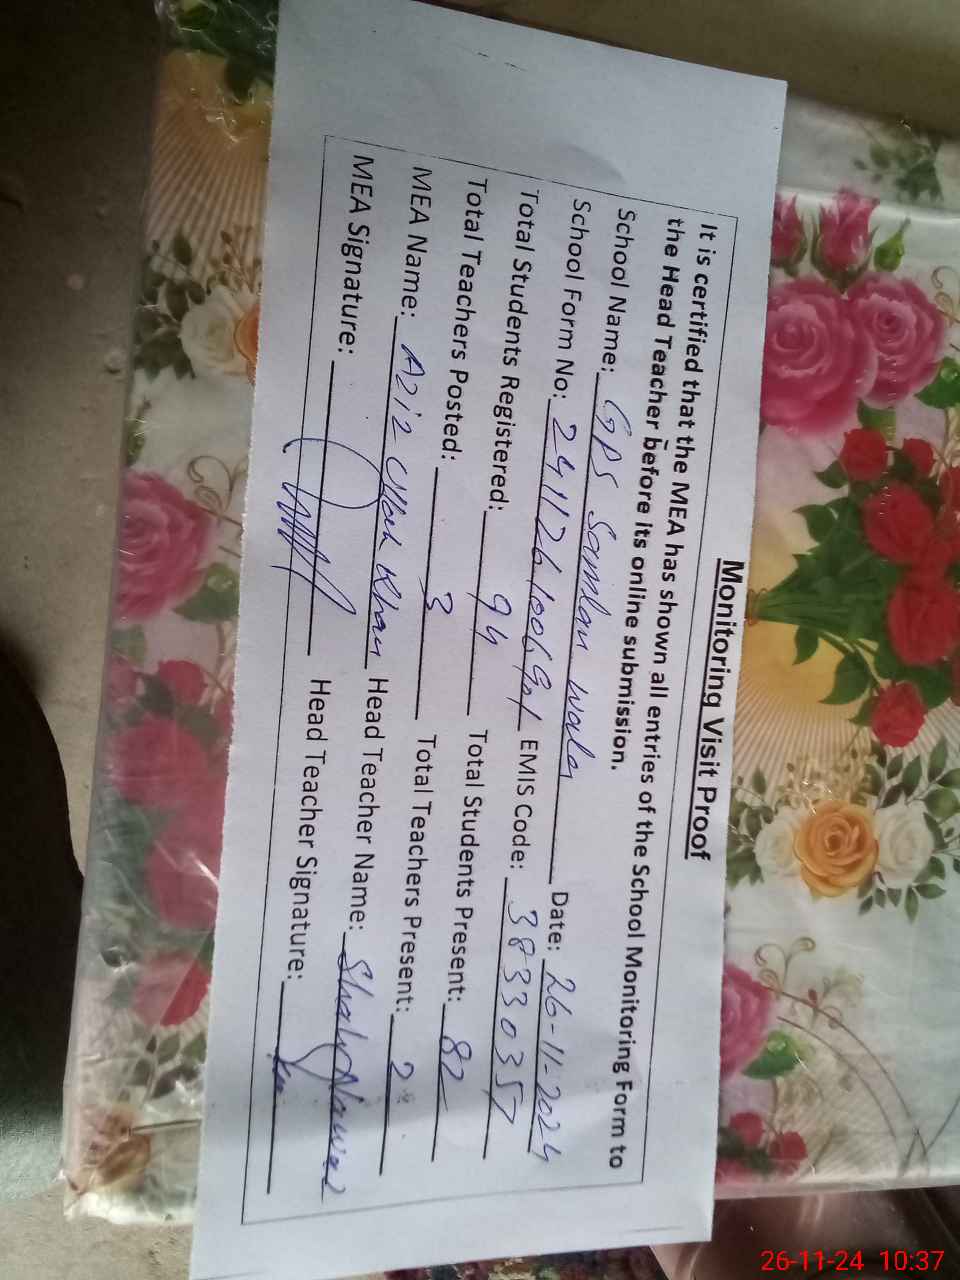 Monitoring Visit Proof
It is certified that the MEA has shown all entries of the School Monitoring Form to
the Head Teacher before its online submission.
School Name: GPS Saimlan wala Date: 26-11-2024
School Form No: EMIS Code: 38330357
Total Students Registered: 94 Total Students Present: 82
Total Teachers Posted: 3 Total Teachers Present: 2
MEA Name: Aziz Ullah Khan Head Teacher Name: Shah Nawaz
MEA Signature: Head Teacher Signature:
26-11-24 10:37